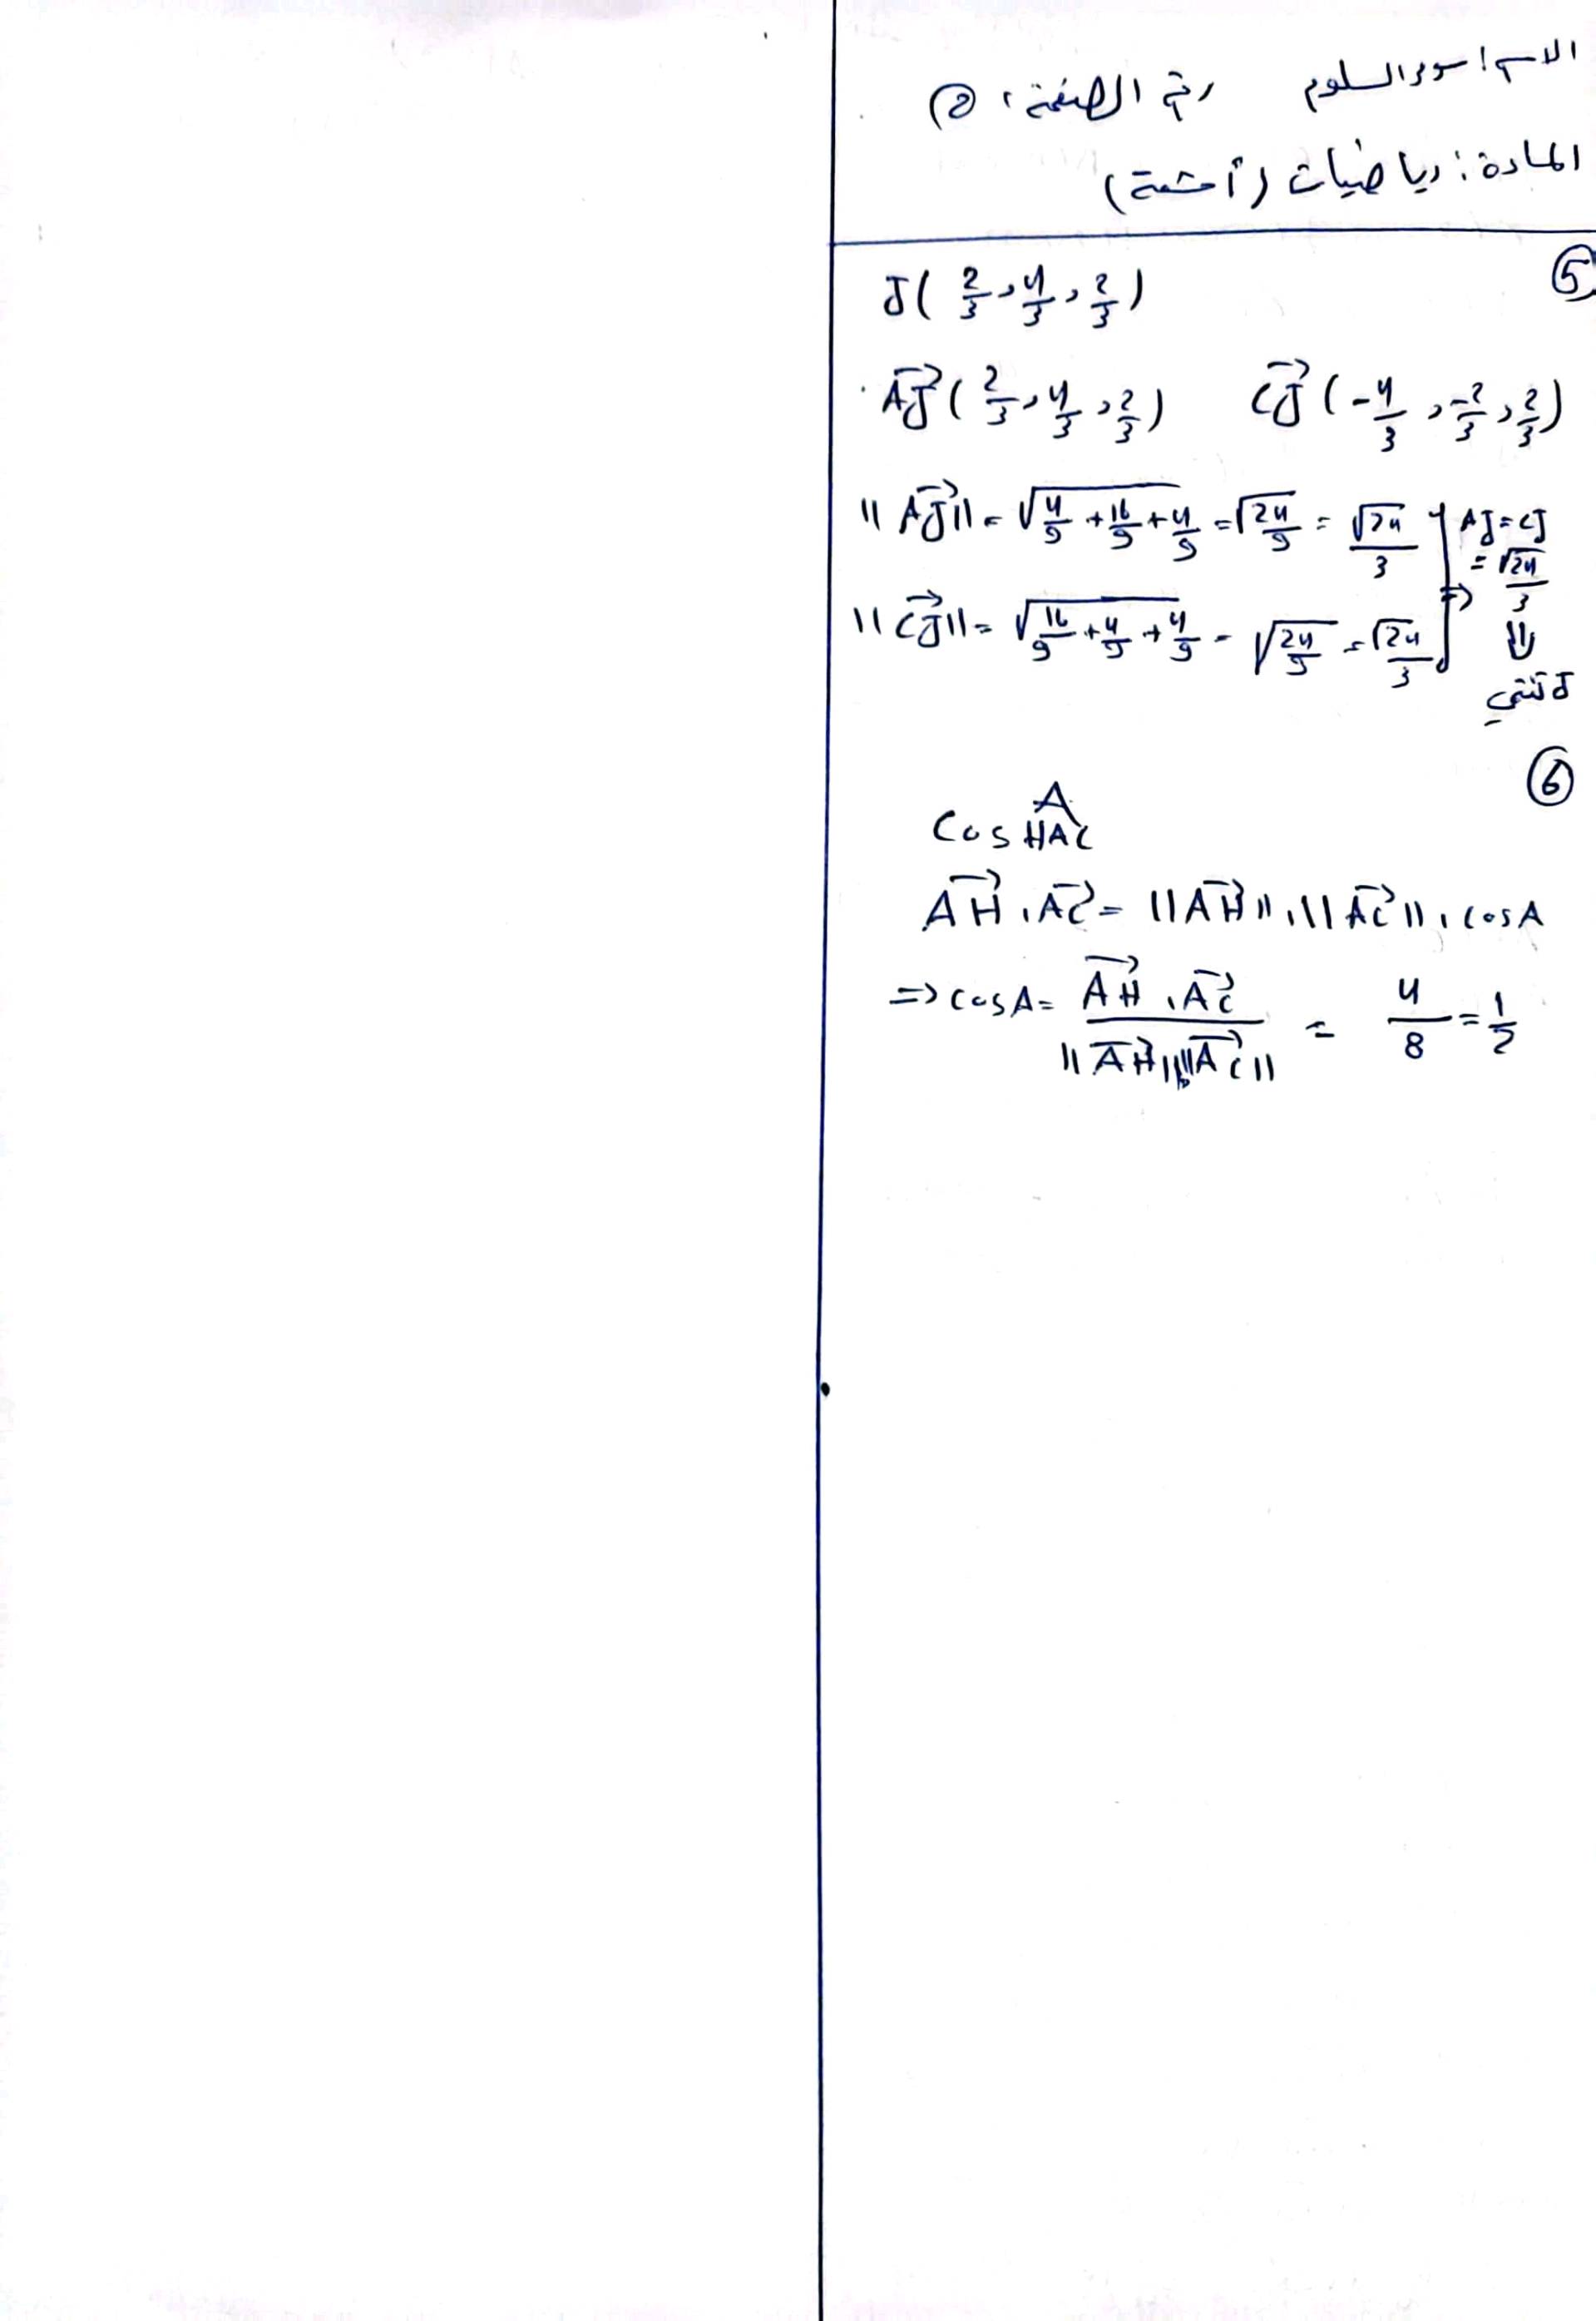 الاسم: سوزالسلوم رقم الصفحة: ②
المادة: رياضيات (أتمتة)
⑤
J( 2/3 , 4/3 , 2/3 )
AJ⃗ ( 2/3 , 4/3 , 2/3 ) CJ⃗ ( -4/3 , -2/3 , 2/3 )
||AJ⃗|| = √(4/9 + 16/9 + 4/9) = √(24/9) = √24/3
||CJ⃗|| = √(16/9 + 4/9 + 4/9) = √(24/9) = √24/3
⇒ AJ = CJ
= √24/3
⇓
J تنتمي
⑥
Cos HAC
AH⃗ . AC⃗ = ||AH⃗|| . ||AC⃗|| . cos A
⇒ cos A = AH⃗ . AC⃗ / ||AH⃗||.||AC⃗|| = 4/8 = 1/2